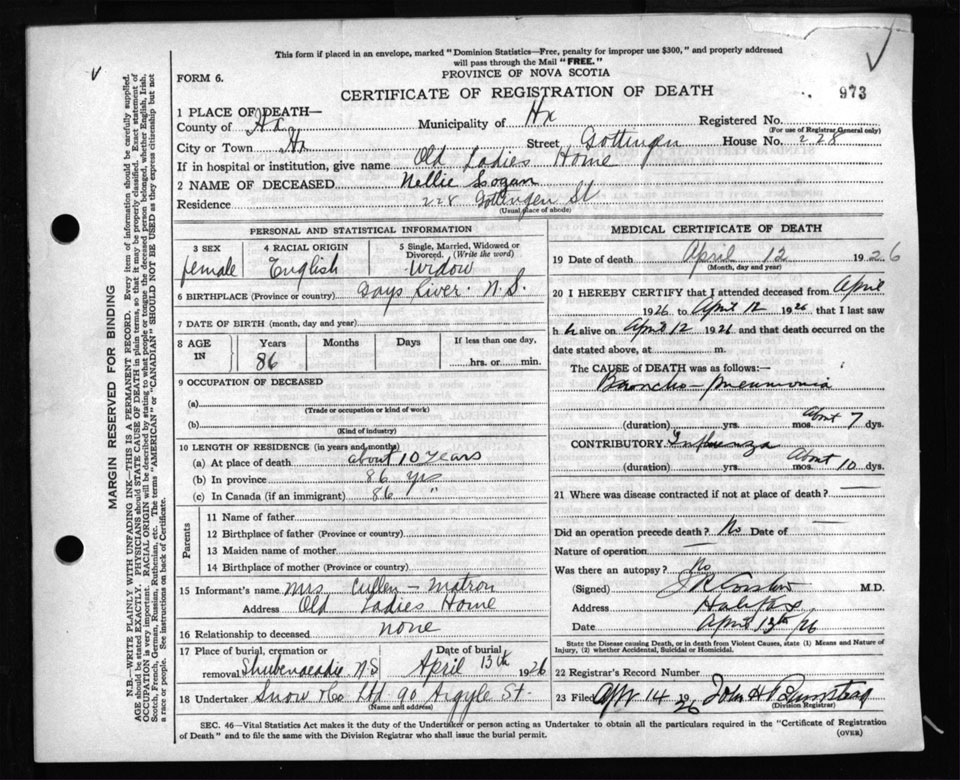 This form if placed in an envelope, marked "Dominion Statistics—Free, penalty for improper use $300," and properly addressed
will pass through the Mail "FREE."
FORM 6.
PROVINCE OF NOVA SCOTIA
CERTIFICATE OF REGISTRATION OF DEATH
973
1 PLACE OF DEATH—
County of Hx Municipality of Hx Registered No.
(For use of Registrar General only)
City or Town Hx Street Gottingen House No. 228
If in hospital or institution, give name Old Ladies Home
2 NAME OF DECEASED Nellie Logan
Residence 228 Gottingen St
(Usual place of abode)
MARGIN RESERVED FOR BINDING
N.B.—WRITE PLAINLY WITH UNFADING INK—THIS IS A PERMANENT RECORD. Every item of information should be carefully supplied.
AGE should be stated EXACTLY. PHYSICIANS should STATE CAUSE OF DEATH in plain terms, so that it may be properly classified. Exact statement of
OCCUPATION is very important. RACIAL ORIGIN will be described by stating to what people or tongue the deceased person belonged, whether English, Irish,
Scotch, French, German, Russian, Ruthenian, etc. The terms "AMERICAN" or "CANADIAN" SHOULD NOT BE USED as they express citizenship but not
a race or people. See instructions on back of Certificate.
PERSONAL AND STATISTICAL INFORMATION
3 SEX female
4 RACIAL ORIGIN English
5 Single, Married, Widowed or
Divorced. (Write the word)
Widow
6 BIRTHPLACE (Province or country) Gays River. N.S.
7 DATE OF BIRTH (month, day and year)
8 AGE IN Years 86 Months Days If less than one day,
hrs. or min.
9 OCCUPATION OF DECEASED
(a)
(Trade or occupation or kind of work)
(b)
(Kind of industry)
10 LENGTH OF RESIDENCE (in years and months)
(a) At place of death about 10 years
(b) In province 86 yrs
(c) In Canada (if an immigrant) 86 "
Parents
11 Name of father
12 Birthplace of father (Province or country)
13 Maiden name of mother
14 Birthplace of mother (Province or country)
15 Informant's name Mrs Cullen - Matron
Address Old Ladies Home
16 Relationship to deceased none
17 Place of burial, cremation or Date of burial
removal Shubenacadie N.S April 13th 1926
18 Undertaker Snow & Co Ltd 90 Argyle St.
(Name and address)
MEDICAL CERTIFICATE OF DEATH
19 Date of death April 12 1926
(Month, day and year)
20 I HEREBY CERTIFY that I attended deceased from April
1926 to April 12 1926 that I last saw
h alive on April 12 1926 and that death occurred on the
date stated above, at m.
The CAUSE of DEATH was as follows:—
Broncho-pneumonia
(duration) yrs. mos. about 7 dys.
CONTRIBUTORY Influenza
(duration) yrs. mos. About 10 dys.
21 Where was disease contracted if not at place of death?
Did an operation precede death? No Date of —
Nature of operation —
Was there an autopsy? No
(Signed) M.D.
Address Halifax
Date April 13th /26
State the Disease causing Death, or in death from Violent Causes, state (1) Means and Nature of
Injury, (2) whether Accidental, Suicidal or Homicidal.
22 Registrar's Record Number
23 Filed Apr 14 1926 John H
(Division Registrar)
SEC. 46—Vital Statistics Act makes it the duty of the Undertaker or person acting as Undertaker to obtain all the particulars required in the "Certificate of Registration
of Death" and to file the same with the Division Registrar who shall issue the burial permit.
(OVER)